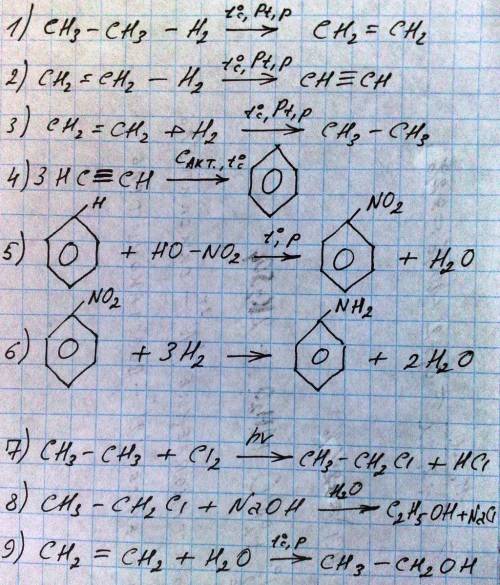 1) CH3-CH3 - H2 —t°c, Pt, p→ CH2=CH2
2) CH2=CH2 - H2 —t°c, Pt, p→ CH≡CH
3) CH2=CH2 + H2 —t°c, Pt, p→ CH3-CH3
4) 3HC≡CH —Cакт., t°c→
5) H + HO-NO2 —t°, p→ NO2 + H2O
6) NO2 + 3H2 → NH2 + 2H2O
7) CH3-CH3 + Cl2 —hν→ CH3-CH2Cl + HCl
8) CH3-CH2Cl + NaOH —H2O→ C2H5OH + NaCl
9) CH2=CH2 + H2O —t°, p→ CH3-CH2OH